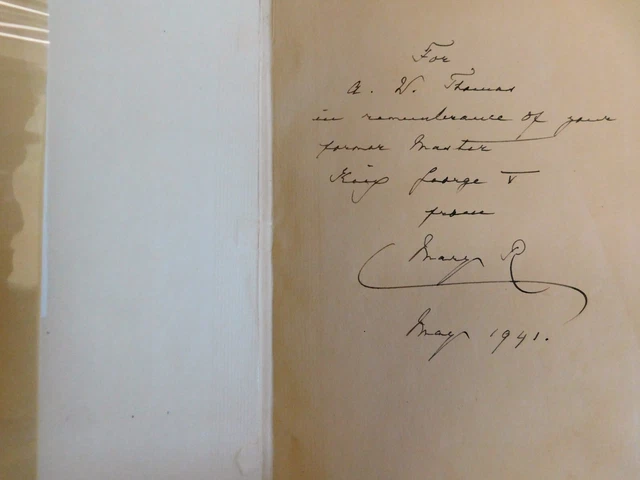 For
A. W. Thomas
in remembrance of your
former Master
King George V
from
Mary R
May 1941.